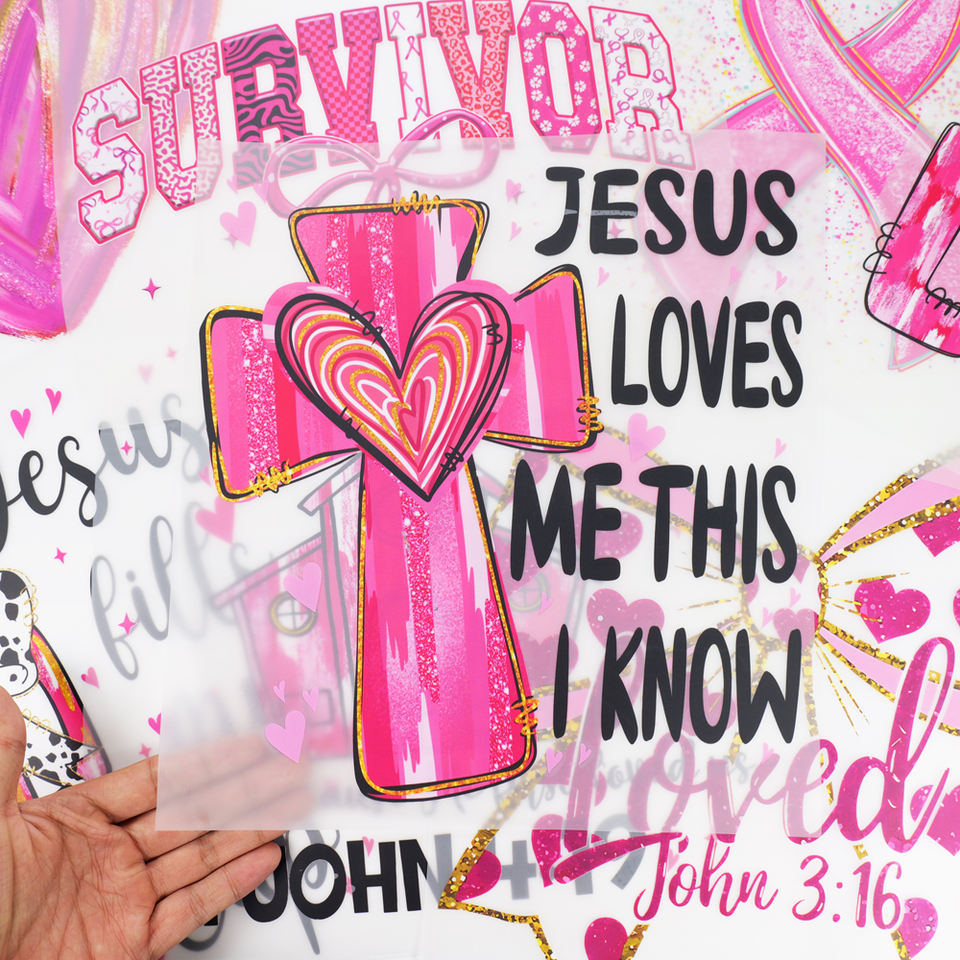 SURVIVOR
JESUS
LOVES
ME THIS
I KNOW
Jesus
fill
Loved
JOHN 4:19
John 3:16